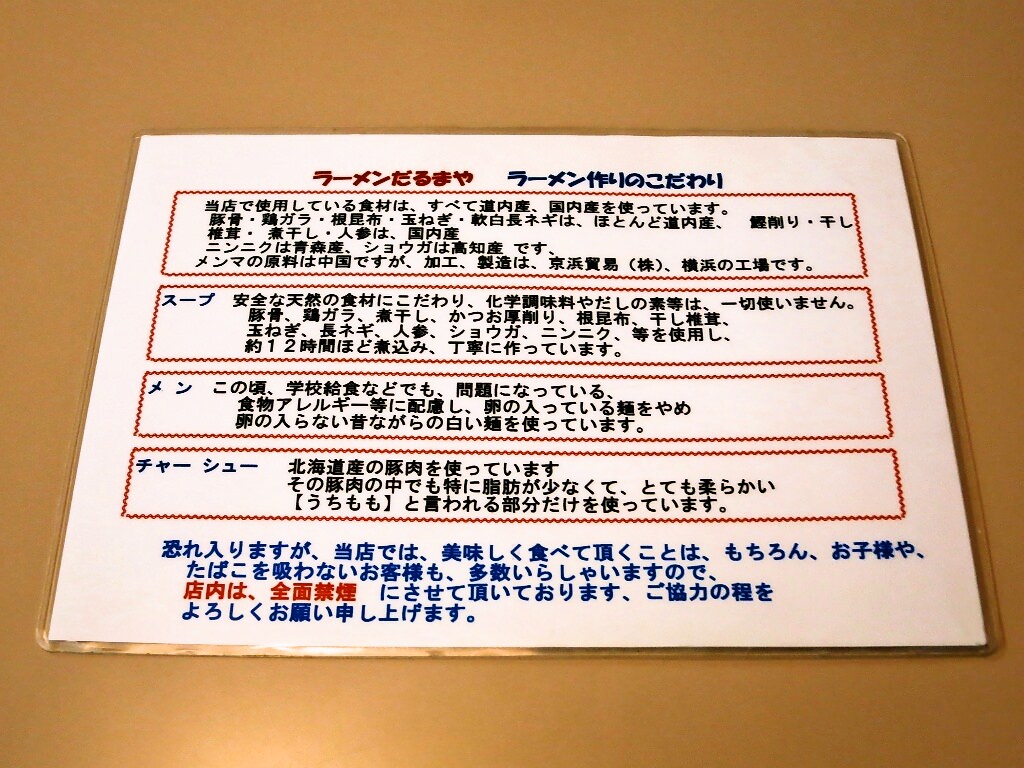 ラーメンだるまや　ラーメン作りのこだわり
当店で使用している食材は、すべて道内産、国内産を使っています。
豚骨・鶏ガラ・根昆布・玉ねぎ・軟白長ネギは、ほとんど道内産、　鰹削り・干し
椎茸・煮干し・人参は、国内産
ニンニクは青森産、ショウガは高知産 です、
メンマの原料は中国ですが、加工、製造は、京浜貿易（株）、横浜の工場です。
スープ　安全な天然の食材にこだわり、化学調味料やだしの素等は、一切使いません。
豚骨、鶏ガラ、煮干し、かつお厚削り、根昆布、干し椎茸、
玉ねぎ、長ネギ、人参、ショウガ、ニンニク、等を使用し、
約１２時間ほど煮込み、丁寧に作っています。
メン　この頃、学校給食などでも、問題になっている、
食物アレルギー等に配慮し、卵の入っている麺をやめ
卵の入らない昔ながらの白い麺を使っています。
チャーシュー　北海道産の豚肉を使っています
その豚肉の中でも特に脂肪が少なくて、とても柔らかい
【うちもも】と言われる部分だけを使っています。
恐れ入りますが、当店では、美味しく食べて頂くことは、もちろん、お子様や、
たばこを吸わないお客様も、多数いらしゃいますので、
店内は、全面禁煙　にさせて頂いております、ご協力の程を
よろしくお願い申し上げます。